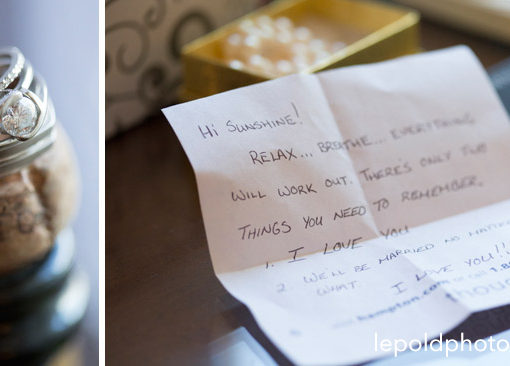 Hi SUNSHINE!
RELAX... BREATHE... EVERYTHING
WILL WORK OUT. THERE'S ONLY TWO
THINGS YOU NEED TO REMEMBER.
1. I LOVE YOU
2. WE'LL BE MARRIED NO MATTER
WHAT. I LOVE YOU!!
hampton.com or call 1.8
lepoldphoto